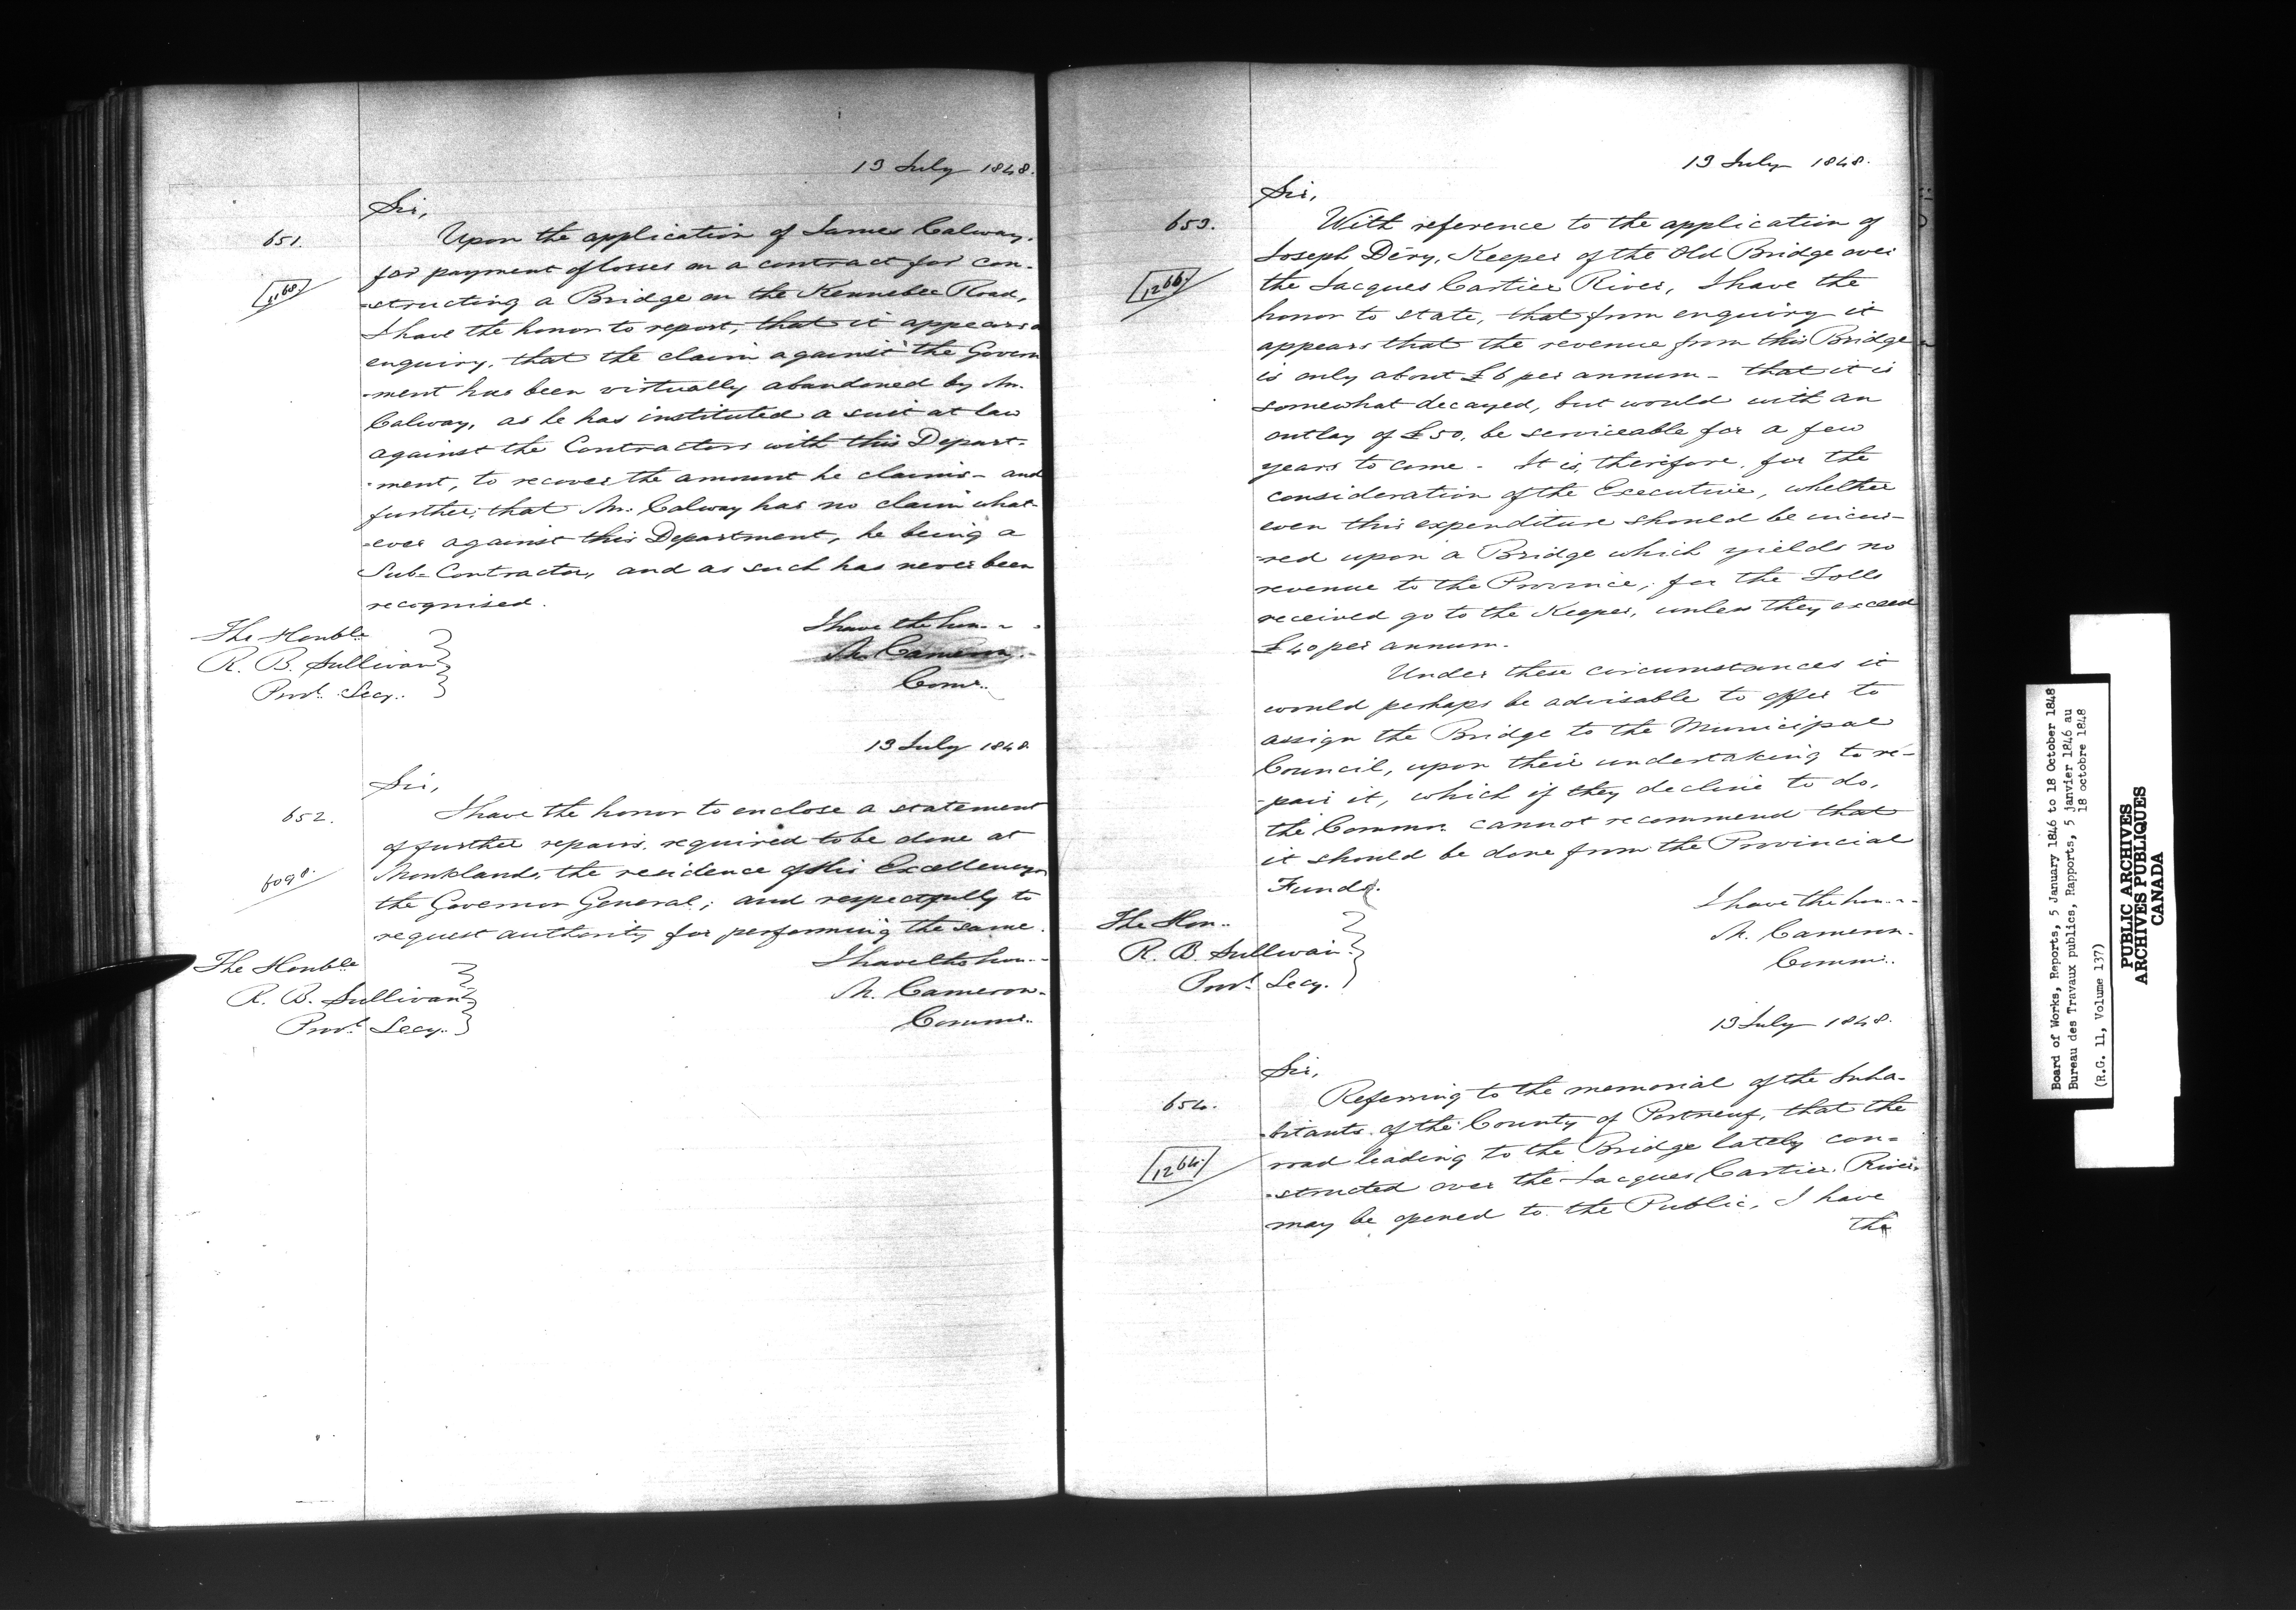 13 July 1848.
Sir,
651.
Upon the application of James Calway,
for payment of losses on a contract for con-
1168.
-structing a Bridge on the Kennebec Road,
I have the honor to report, that it appears
enquiry, that the claim against the Govern
-ment has been virtually abandoned by Mr.
Calway, as he has instituted a suit at law
against the Contractors with this Depart-
-ment, to recover the amount he claims - and
further, that Mr. Calway has no claim what-
-ever against this Department, he being a
Sub-Contractor, and as such has never been
recognised.
I have the hon..
The Honble
R. B. Sullivan
Provl. Secy.
M. Cameron.
Comr..
13 July 1848.
Sir,
652.
I have the honor to enclose a statement
of further repairs required to be done at
6098.
Monklands, the residence of His Excellency
the Governor General; and respectfully to
request authority for performing the same.
I have the hon..
The Honble
R. B. Sullivan
Provl. Secy.
M. Cameron.
Commr..
13 July 1848.
Sir,
653.
With reference to the application of
Joseph Déry, Keeper of the Old Bridge over
1266.
the Jacques Cartier River, I have the
honor to state, that from enquiry it
appears that the revenue from this Bridge
is only about £6 per annum - that it is
somewhat decayed, but would with an
outlay of £50, be serviceable for a few
years to come - It is, therefore, for the
consideration of the Executive, whether
even this expenditure should be incur-
-red upon a Bridge which yields no
revenue to the Province; for the Tolls
received go to the Keeper, unless they exceed
£40 per annum.
Under these circumstances it
would perhaps be advisable to offer to
assign the Bridge to the Municipal
Council, upon their undertaking to re-
-pair it, which if they decline to do,
the Commr. cannot recommend that
it should be done from the Provincial
Funds.
I have the hon..
The Hon..
R. B. Sullivan
Provl. Secy.
M. Cameron.
Commr..
13 July 1848.
Sir,
654.
Referring to the memorial of the Inha-
-bitants of the County of Portneuf, that the
1264.
road leading to the Bridge lately con-
-structed over the Jacques Cartier River
may be opened to the Public, I have
the
Board of Works, Reports, 5 January 1846 to 18 October 1848
Bureau des Travaux publics, Rapports, 5 janvier 1846 au
18 octobre 1848
(R.G. 11, Volume 137)
PUBLIC ARCHIVES
ARCHIVES PUBLIQUES
CANADA